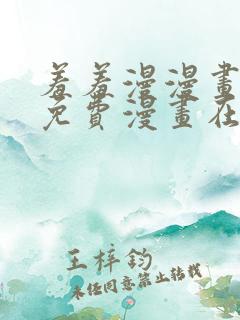 羞羞漫漫畫
免費漫畫在
王梓鈞
未经同意禁止转载